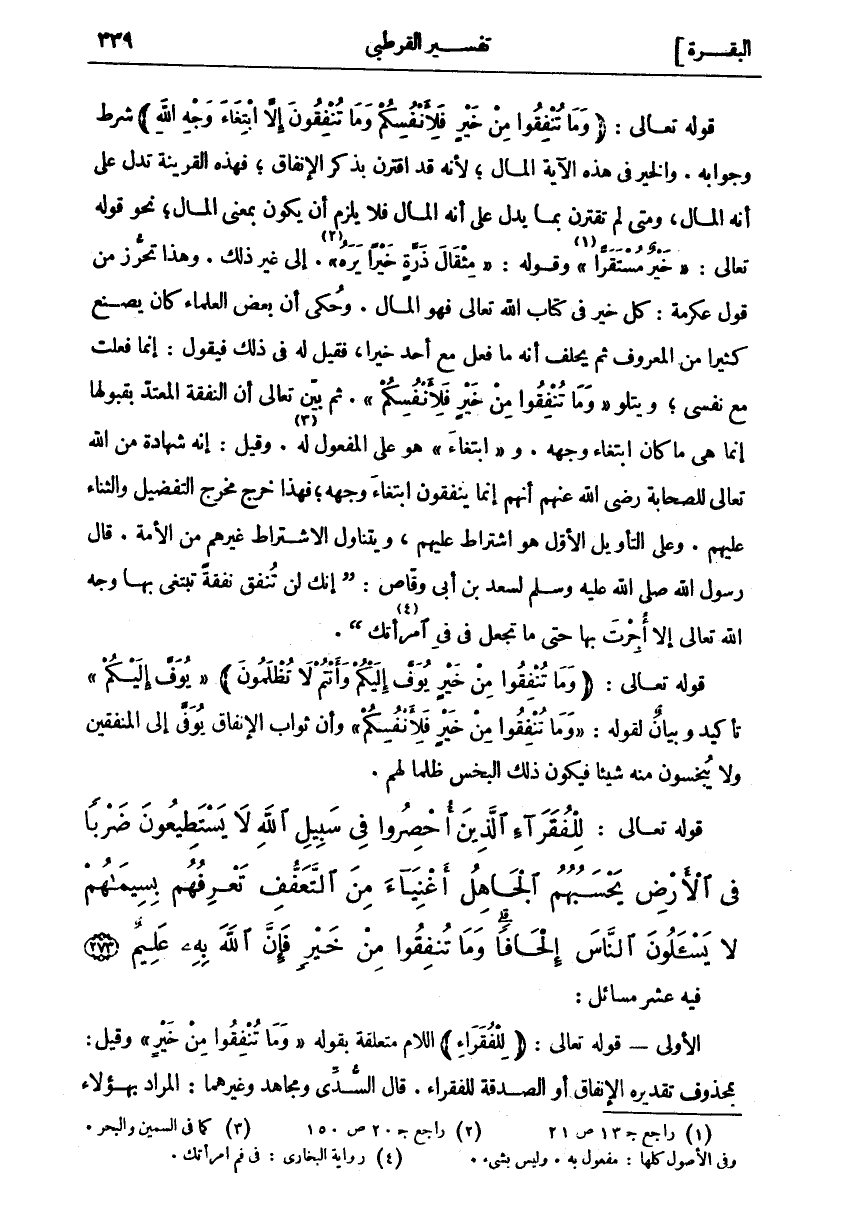 البقـــرة] تفســـير القرطبى ٣٣٩
قوله تعـالى : ﴿ وَمَا تُنْفِقُوا مِنْ خَيْرٍ فَلِأَنْفُسِكُمْ وَمَا تُنْفِقُونَ إِلَّا ابْتِغَاءَ وَجْهِ اللهِ ﴾ شرط
وجوابه . والخير فى هذه الآية المـال ؛ لأنه قد اقترن بذكر الإنفاق ؛ فهذه القرينة تدل على
أنه المـال ، ومتى لم تقترن بمـا يدل على أنه المـال فلا يلزم أن يكون بمعنى المـال؛ نحو قوله
تعالى : « خَيْرٌ مُسْتَقَرًّا (١)» وقـوله : « مِثْقَالَ ذَرَّةٍ خَيْرًا يَرَهُ (٢)» . إلى غير ذلك . وهذا تحرُّز من
قول عكرمة : كل خير فى كتاب الله تعالى فهو المـال . وحُكى أن بعض العلماء كان يصـنع
كثيرا من المعروف ثم يحلف أنه ما فعل مع أحد خيرا، فقيل له فى ذلك فيقول : إنما فعلت
مع نفسى ؛ ويتلو « وَمَا تُنْفِقُوا مِنْ خَيْرٍ فَلِأَنْفُسِكُمْ » . ثم بيّن تعالى أن النفقة المعتدّ بقبولها
إنما هى ما كان ابتغاء وجهه . و « ابتغاءَ » هو على المفعول له (٣). وقيل : إنه شهادة من الله
تعالى للصحابة رضى الله عنهم أنهم إنما ينفقون ابتغاءَ وجهه؛ فهذا خرج مخرج التفضيل والثناء
عليهم . وعلى التأويل الأوّل هو اشتراط عليهم ، ويتناول الاشـتراط غيرهم من الأمة . قال
رسول الله صلى الله عليه وسـلم لسعد بن أبى وقّاص : ” إنك لن تُنفق نفقةً تبتغى بهـا وجه
الله تعالى إلا أُجِرْتَ بها حتى ما تجعل فى فى آمرأتك (٤)“ .
قوله تعـالى : ﴿ وَمَا تُنْفِقُوا مِنْ خَيْرٍ يُوَفَّ إِلَيْكُمْ وَأَنْتُمْ لَا تُظْلَمُونَ ﴾ « يُوَفَّ إِلَيْـكُمْ »
تأكيد وبيانٌ لقوله : «وَمَا تُنْفِقُوا مِنْ خَيْرٍ فَلِأَنْفُسِكُمْ» وأن ثواب الإنفاق يُوَفَّى إلى المنفقين
ولا يُبخسون منه شيئا فيكون ذلك البخس ظلما لهم .
قوله تعـالى : لِلْفُقَرَآءِ ٱلَّذِينَ أُحْصِرُوا فِى سَبِيلِ ٱللَّهِ لَا يَسْتَطِيعُونَ ضَرْبًا
فِى ٱلْأَرْضِ يَحْسَبُهُمُ ٱلْجَاهِلُ أَغْنِيَآءَ مِنَ ٱلتَّعَفُّفِ تَعْرِفُهُم بِسِيمَـٰهُمْ
لَا يَسْـَٔلُونَ ٱلنَّاسَ إِلْحَافًا ۗ وَمَا تُنفِقُوا مِنْ خَيْرٍ فَإِنَّ ٱللَّهَ بِهِۦ عَلِيمٌ ﴿٢٧٣﴾
فيه عشر مسائل :
الأولى — قوله تعالى : ﴿ لِلْفُقَرَاءِ ﴾ اللام متعلقة بقوله « وَمَا تُنْفِقُوا مِنْ خَيْرٍ » وقيل :
بمحذوف تقديره الإنفاق أو الصـدقة للفقراء . قال السُّدِّى ومجاهد وغيرهما : المراد بهـؤلاء
(١) راجع جـ ١٣ ص ٢١ (٢) راجع جـ ٢٠ ص ١٥٠ (٣) كما فى السمين والبحر .
وفى الأصول كلها : مفعول به . وليس بشىء . (٤) رواية البخارى : فى فم امرأتك .